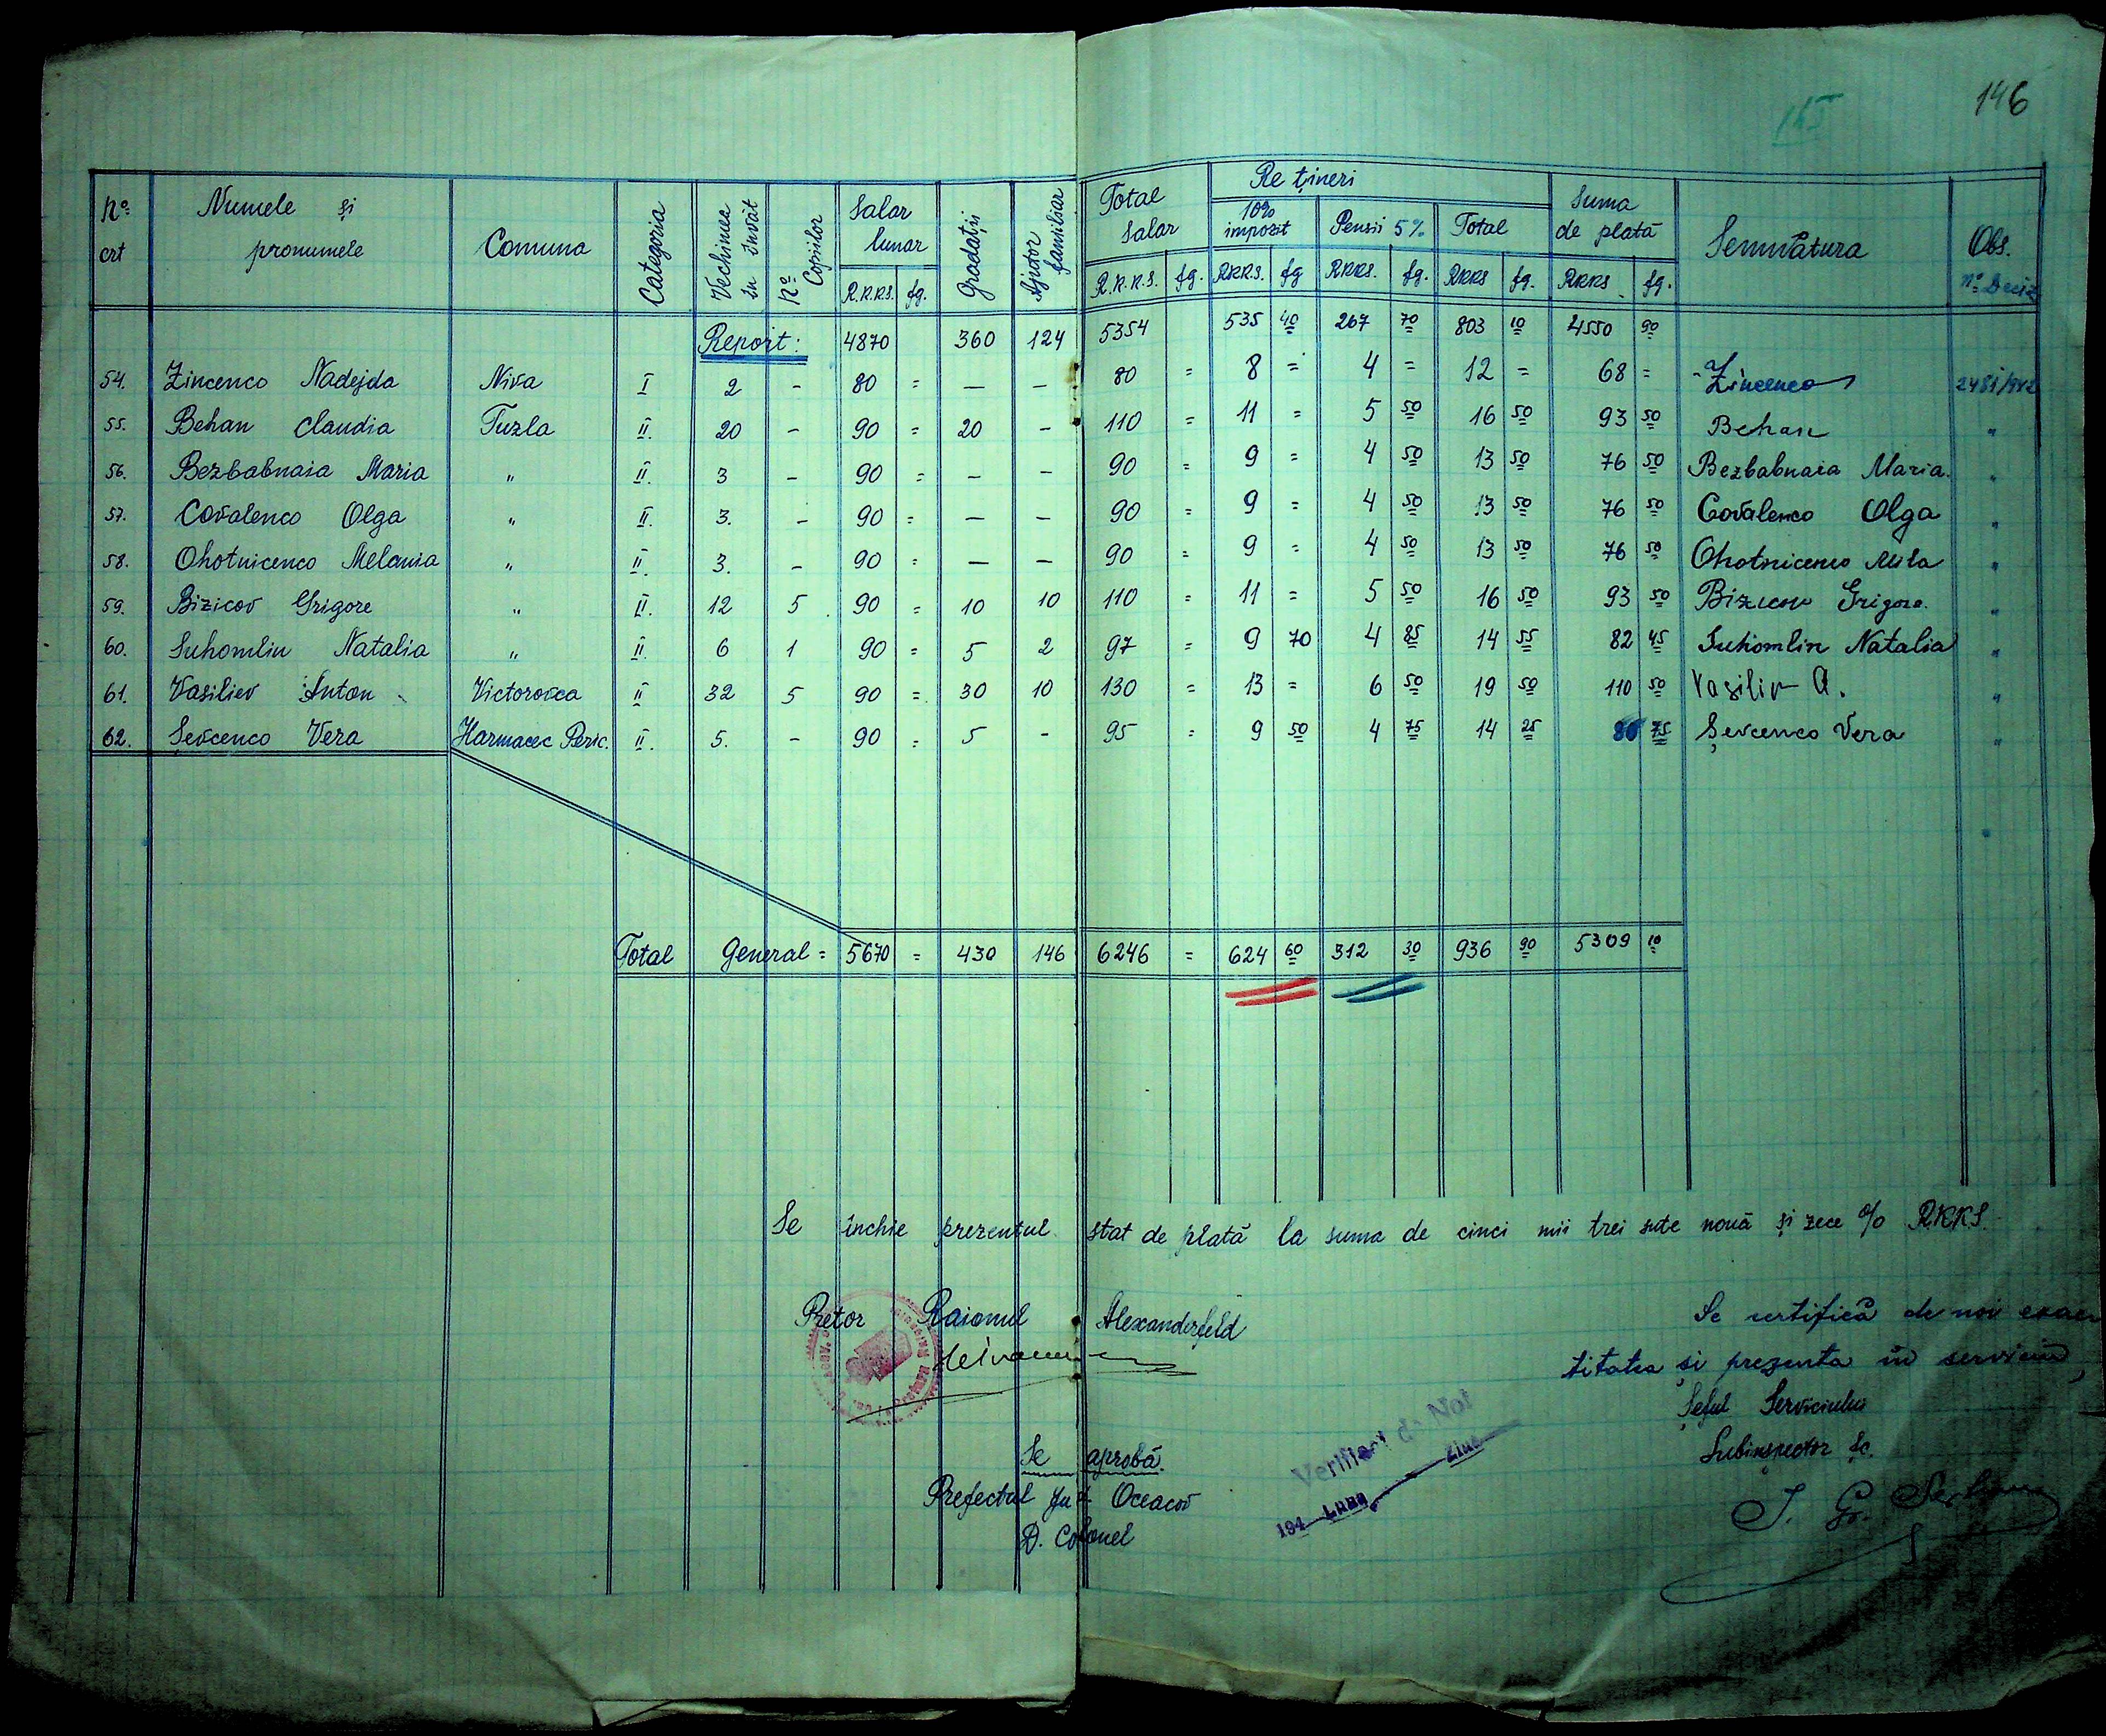 146
Nº crt Numele și pronumele Comuna Categoria Vechimea în învăț Nº Copiilor Salar lunar R.K.K.S. fg. Gradații Ajutor familiar Total salar R.K.K.S. fg. Rețineri 10% impozit RKKS. fg Pensii 5% RKKS. fg. Total RKKS fg. Suma de plată RKKS fg. Semnătura Obs. Nº Deciz
Report: 4870 360 124 5354 535 40 267 70 803 10 4550 90
54. Zincenco Nadejda Niva I 2 - 80 = — - 80 = 8 = 4 = 12 = 68 = Zincenco 2481/942
55. Behan Claudia Tuzla II. 20 - 90 = 20 - 110 = 11 = 5 50 16 50 93 50 Behan "
56. Bezbabnaia Maria " II. 3 - 90 = — - 90 = 9 = 4 50 13 50 76 50 Bezbabnaia Maria. "
57. Covalenco Olga " II. 3. - 90 = — — 90 = 9 = 4 50 13 50 76 50 Covalenco Olga "
58. Ohotnicenco Melania " II. 3. - 90 = — — 90 = 9 = 4 50 13 50 76 50 Ohotnicenco "
59. Bizicov Grigore " II. 12 5 90 = 10 10 110 = 11 = 5 50 16 50 93 50 Bizicov Grigore. "
60. Suhomlin Natalia " II. 6 1 90 = 5 2 97 = 9 70 4 85 14 55 82 45 Suhomlin Natalia "
61. Vasiliev Anton Victorovca II 32 5 90 = 30 10 130 = 13 = 6 50 19 50 110 50 Vasiliv A. "
62. Șevcenco Vera Harmacec Peric. II. 5. - 90 = 5 - 95 = 9 50 4 75 14 25 80 75 Șevcenco Vera "
Total General = 5670 = 430 146 6246 = 624 60 312 30 936 90 5309 10
Se închie prezentul stat de plată la suma de cinci mii trei sute nouă și zece % R.K.K.S.
Pretor Raionul Alexanderfeld
Se certifică de noi exac
titatea și prezenta în serviciu,
Șeful Serviciului
Subinspector Șc.
Se aprobă.
Prefectul Jud. Oceacov
D. Colonel
Verificat de Noi
194 Luna Ziua